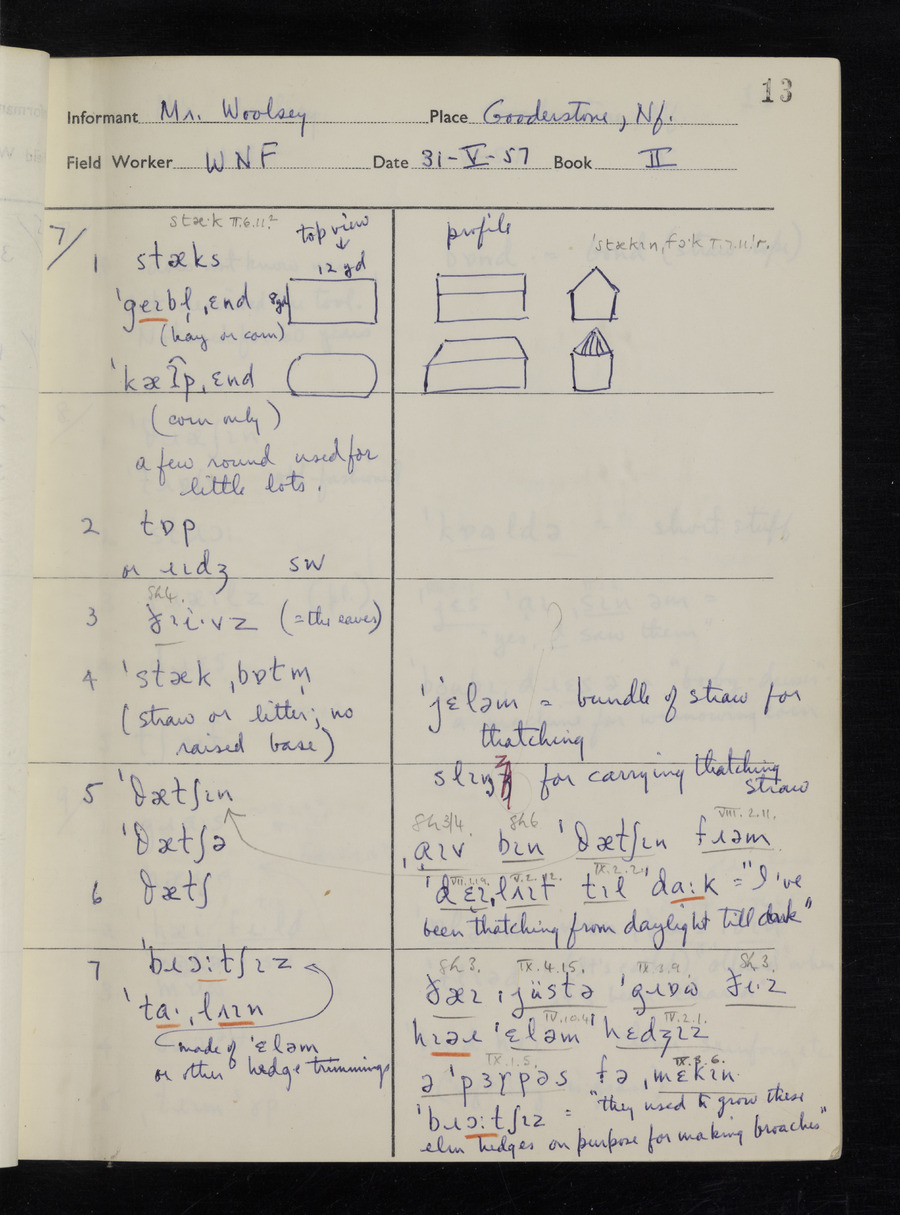 13
Informant Mr. Woolsey Place Gooderstone, Nf.
Field Worker WNF Date 31-V-57 Book II
7/
stæ·k II.6.11.²
top view
1 stæks
12 yd
ˈgeɪbl̩ ˌɛnd 8yd
(hay or corn)
ˈkæɪp ˌɛnd
(corn only)
a few round used for
little lots.
2 tɒp
or ɹɪdʒ SW
Sh4.
3 (= the eaves)
4 ˈstæk ˌbɒtm̩
(straw or litter; no
raised base)
5 ˈθætʃɪn
ˈθætʃə
6 θætʃ
7 ˈbɹɔːtʃɪz
made of ˈɛləm
or other hedge trimmings
profile
ˈjɛləm = bundle of straw for
thatching
for carrying thatching
straw
Sh3/4. Sh6 VIII.2.11.
ˌɑɪv bɪn ˈθætʃɪn fɹəm
tɪl ˈdaːk = "I've
been thatching from daylight till dark"
Sh3. IX.4.15. IX.3.9. Sh.3.
IV.10.4 IV.2.1.
ˈɛləm ˈhɛdʒɪz
IX.1.5. IX.3.6.
ə ˈpɜɤpəs fə ˌmɛkɪn
ˈbɹɔːtʃɪz = "they used to grow these
elm hedges on purpose for making broaches"